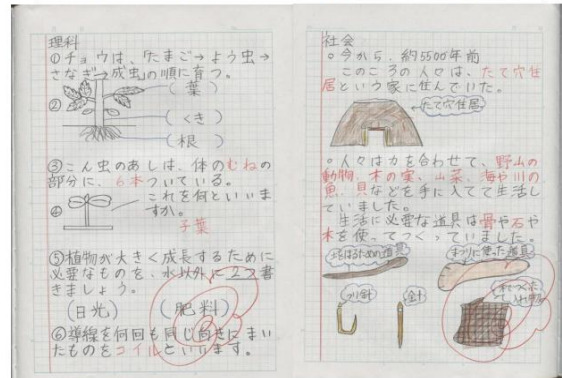 理科
①チョウは、「たまご→よう虫→
さなぎ→成虫」の順に育つ。
②
(葉)
(くき)
(根)
③こん虫のあしは、体のむねの
部分に、6本ついている。
④
これを何といいま
すか。
子葉
⑤植物が大きく成長するために
必要なものを、水以外に2つ書
きましょう。
(日光) (肥料)
⑥導線を何回も同じ向きにまい
たものをコイルといいます。
社会
○今から、約5500年前
このころの人々は、たて穴住
居という家に住んでいた。
←たて穴住居
○人々は力を合わせて、野山の
動物、木の実、山菜、海や川の
魚、貝などを手に入れて生活し
ていました。
生活に必要な道具は骨や石や
木を使ってつくっていました。
土をほるための道具
まつりに使った道具
つり針
針